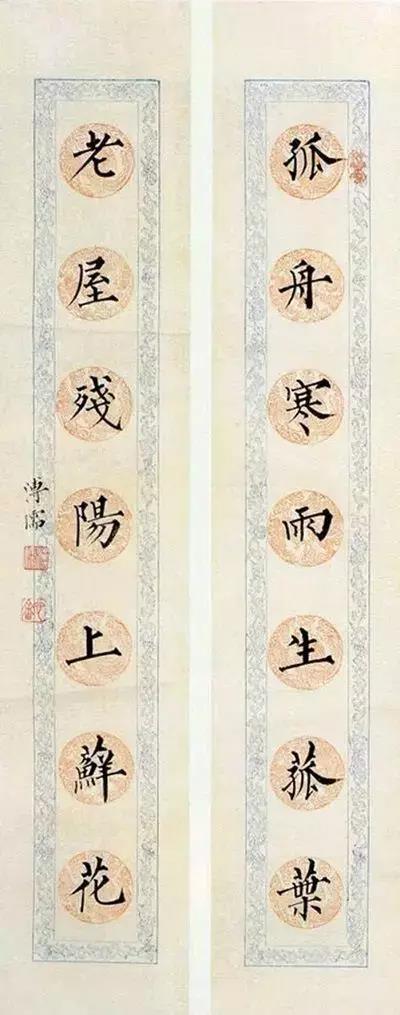 孤舟寒雨生菰葉
老屋殘陽上蘚花
溥儒